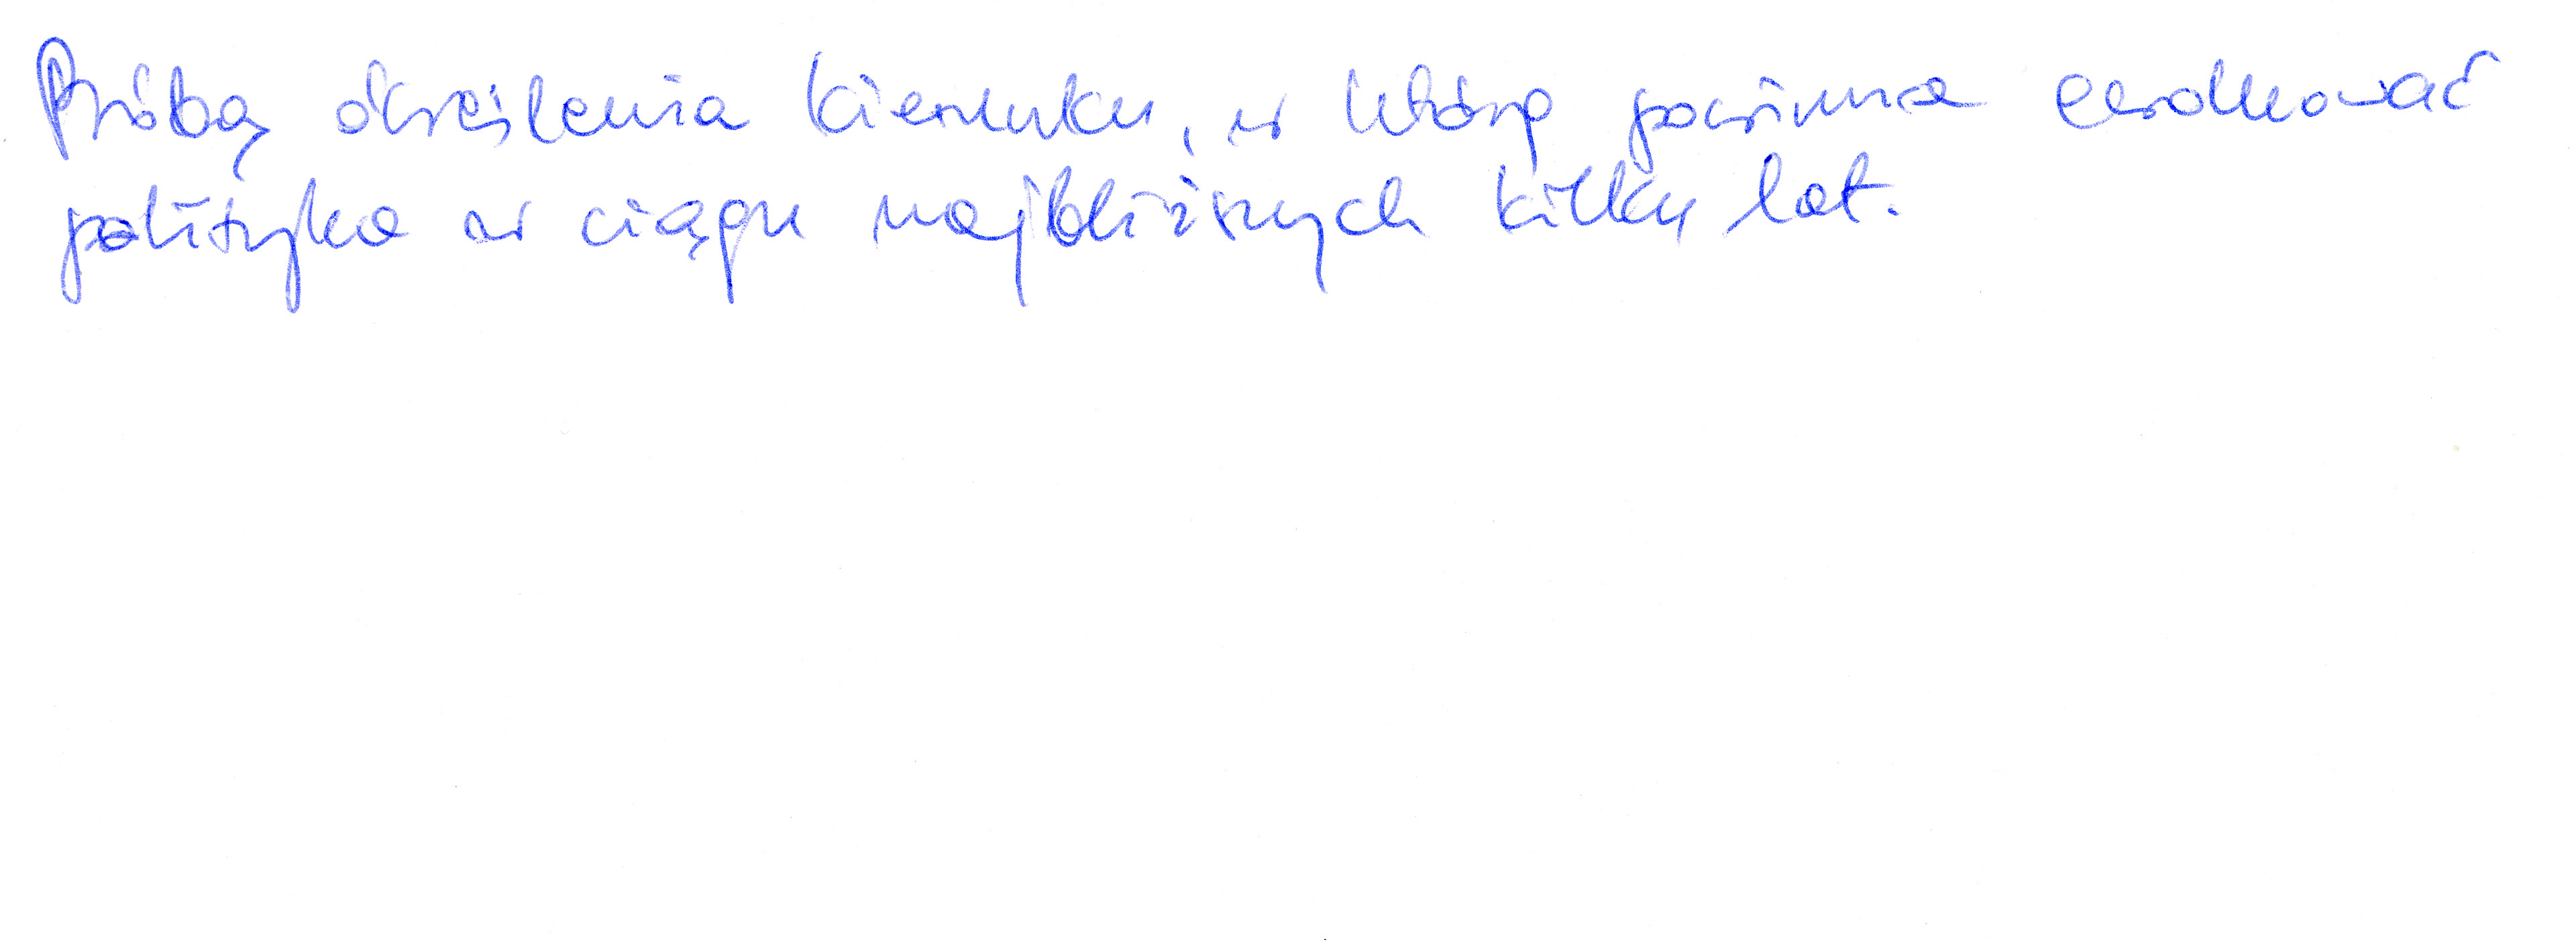 Próbą określenia kierunku, w którą powinna ewoluować
polityka w ciągu najbliższych kilku lat.